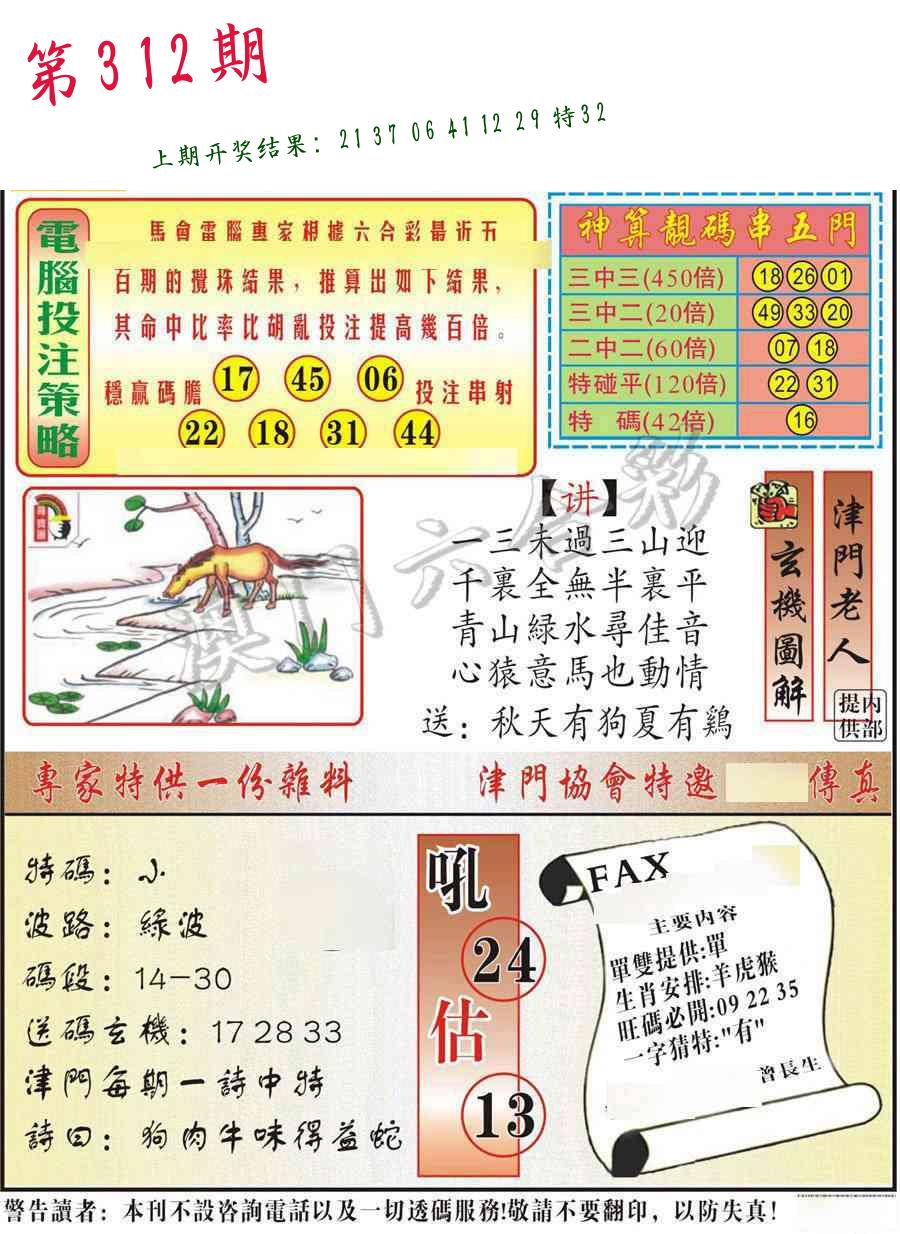 第312期
上期开奖结果：21 37 06 41 12 29 特32
電腦投注策略
馬會電腦專家根據六合彩最近五
百期的攪珠結果，推算出如下結果，
其命中比率比胡亂投注提高幾百倍。
穩贏碼膽 17 45 06 投注串射
22 18 31 44
神算靚碼串五門
三中三(450倍) 18 26 01
三中二(20倍) 49 33 20
二中二(60倍) 07 18
特碰平(120倍) 22 31
特 碼(42倍) 16
澳门六合彩
【讲】
一三未過三山迎
千裏全無半裏平
青山緑水尋佳音
心猿意馬也動情
送：秋天有狗夏有鷄
玄機圖解
津門老人
内部提供
專家特供一份雜料
津門協會特邀 傳真
特碼：小
波路：綠波
碼段：14-30
送碼玄機：17 28 33
津門每期一詩中特
詩曰：狗肉牛味得益蛇
吼
24
估
13
FAX
主要内容
單雙提供:單
生肖安排:羊虎猴
旺碼必開:09 22 35
一字猜特:"有"
曾長生
警告讀者：本刊不設咨詢電話以及一切透碼服務!敬請不要翻印，以防失真!